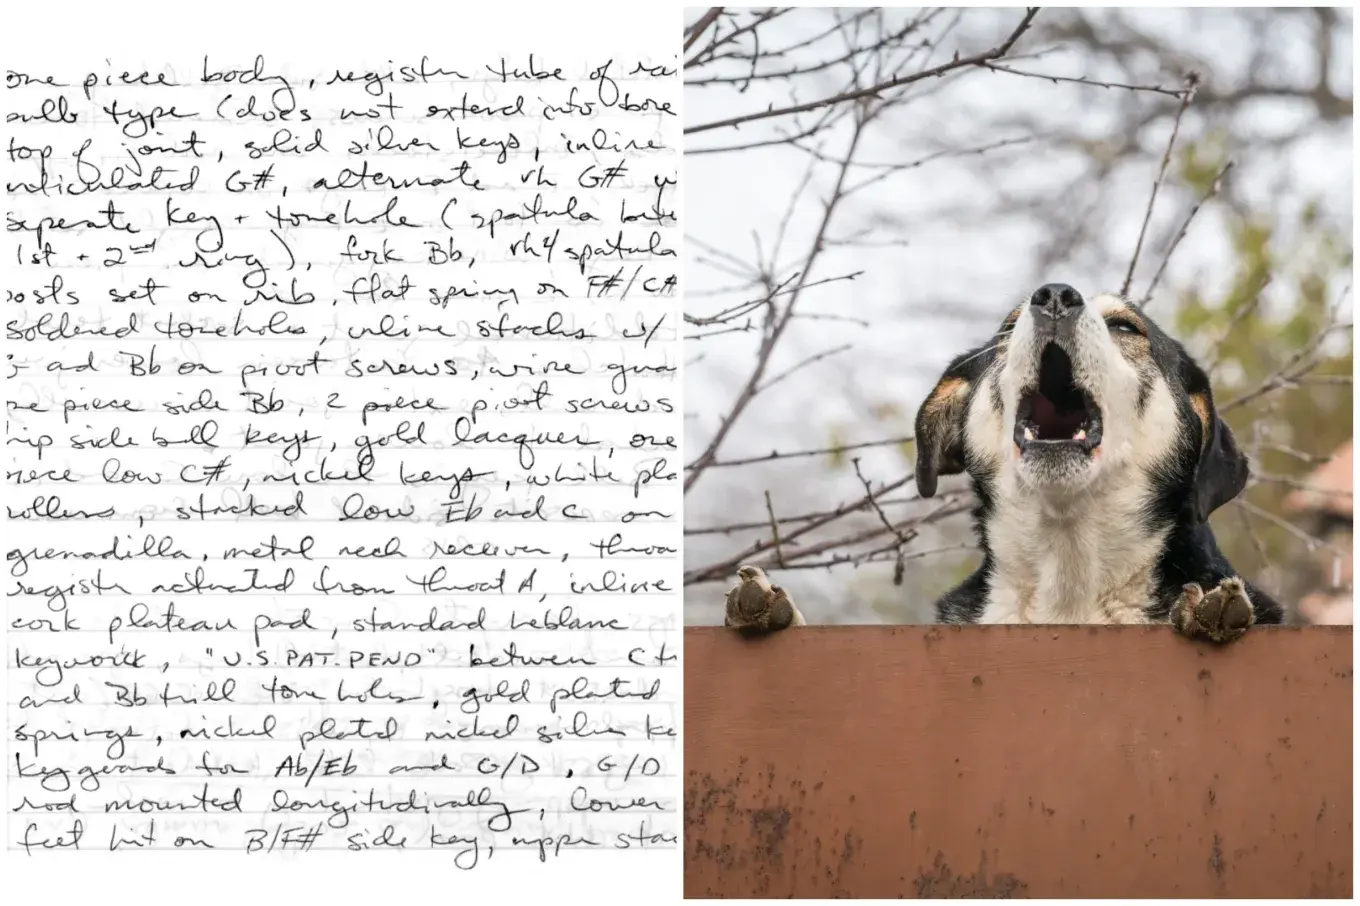 one piece body, register tube of rai
bulb type (does not extend into bore
top of joint, solid silver keys, inline
articulated G#, alternate rh G# w
seperate key + tonehole (spatula betw
1st + 2nd ring), fork Bb, rh4 spatula
posts set on rib, flat spring on F#/C#
soldered toneholes, inline stacks w/
ad Bb on pivot screws, wire gua
ne piece side Bb, 2 piece pivot screws
hip side bell keys, gold lacquer, one
piece low C#, nickel keys, white pla
rollers, stacked low Eb ad C on
grenadilla, metal neck receiver, throa
register actuated from throat A, inline
cork plateau pad, standard Leblanc
keywork, "U.S. PAT. PEND" between C
and Bb trill tone holes, gold plated
springs, nickel plated nickel silver ke
keyguards for Ab/Eb and G/D, G/D
rod mounted longitudinally, lower
feet hit on B/F# side key, upper stac